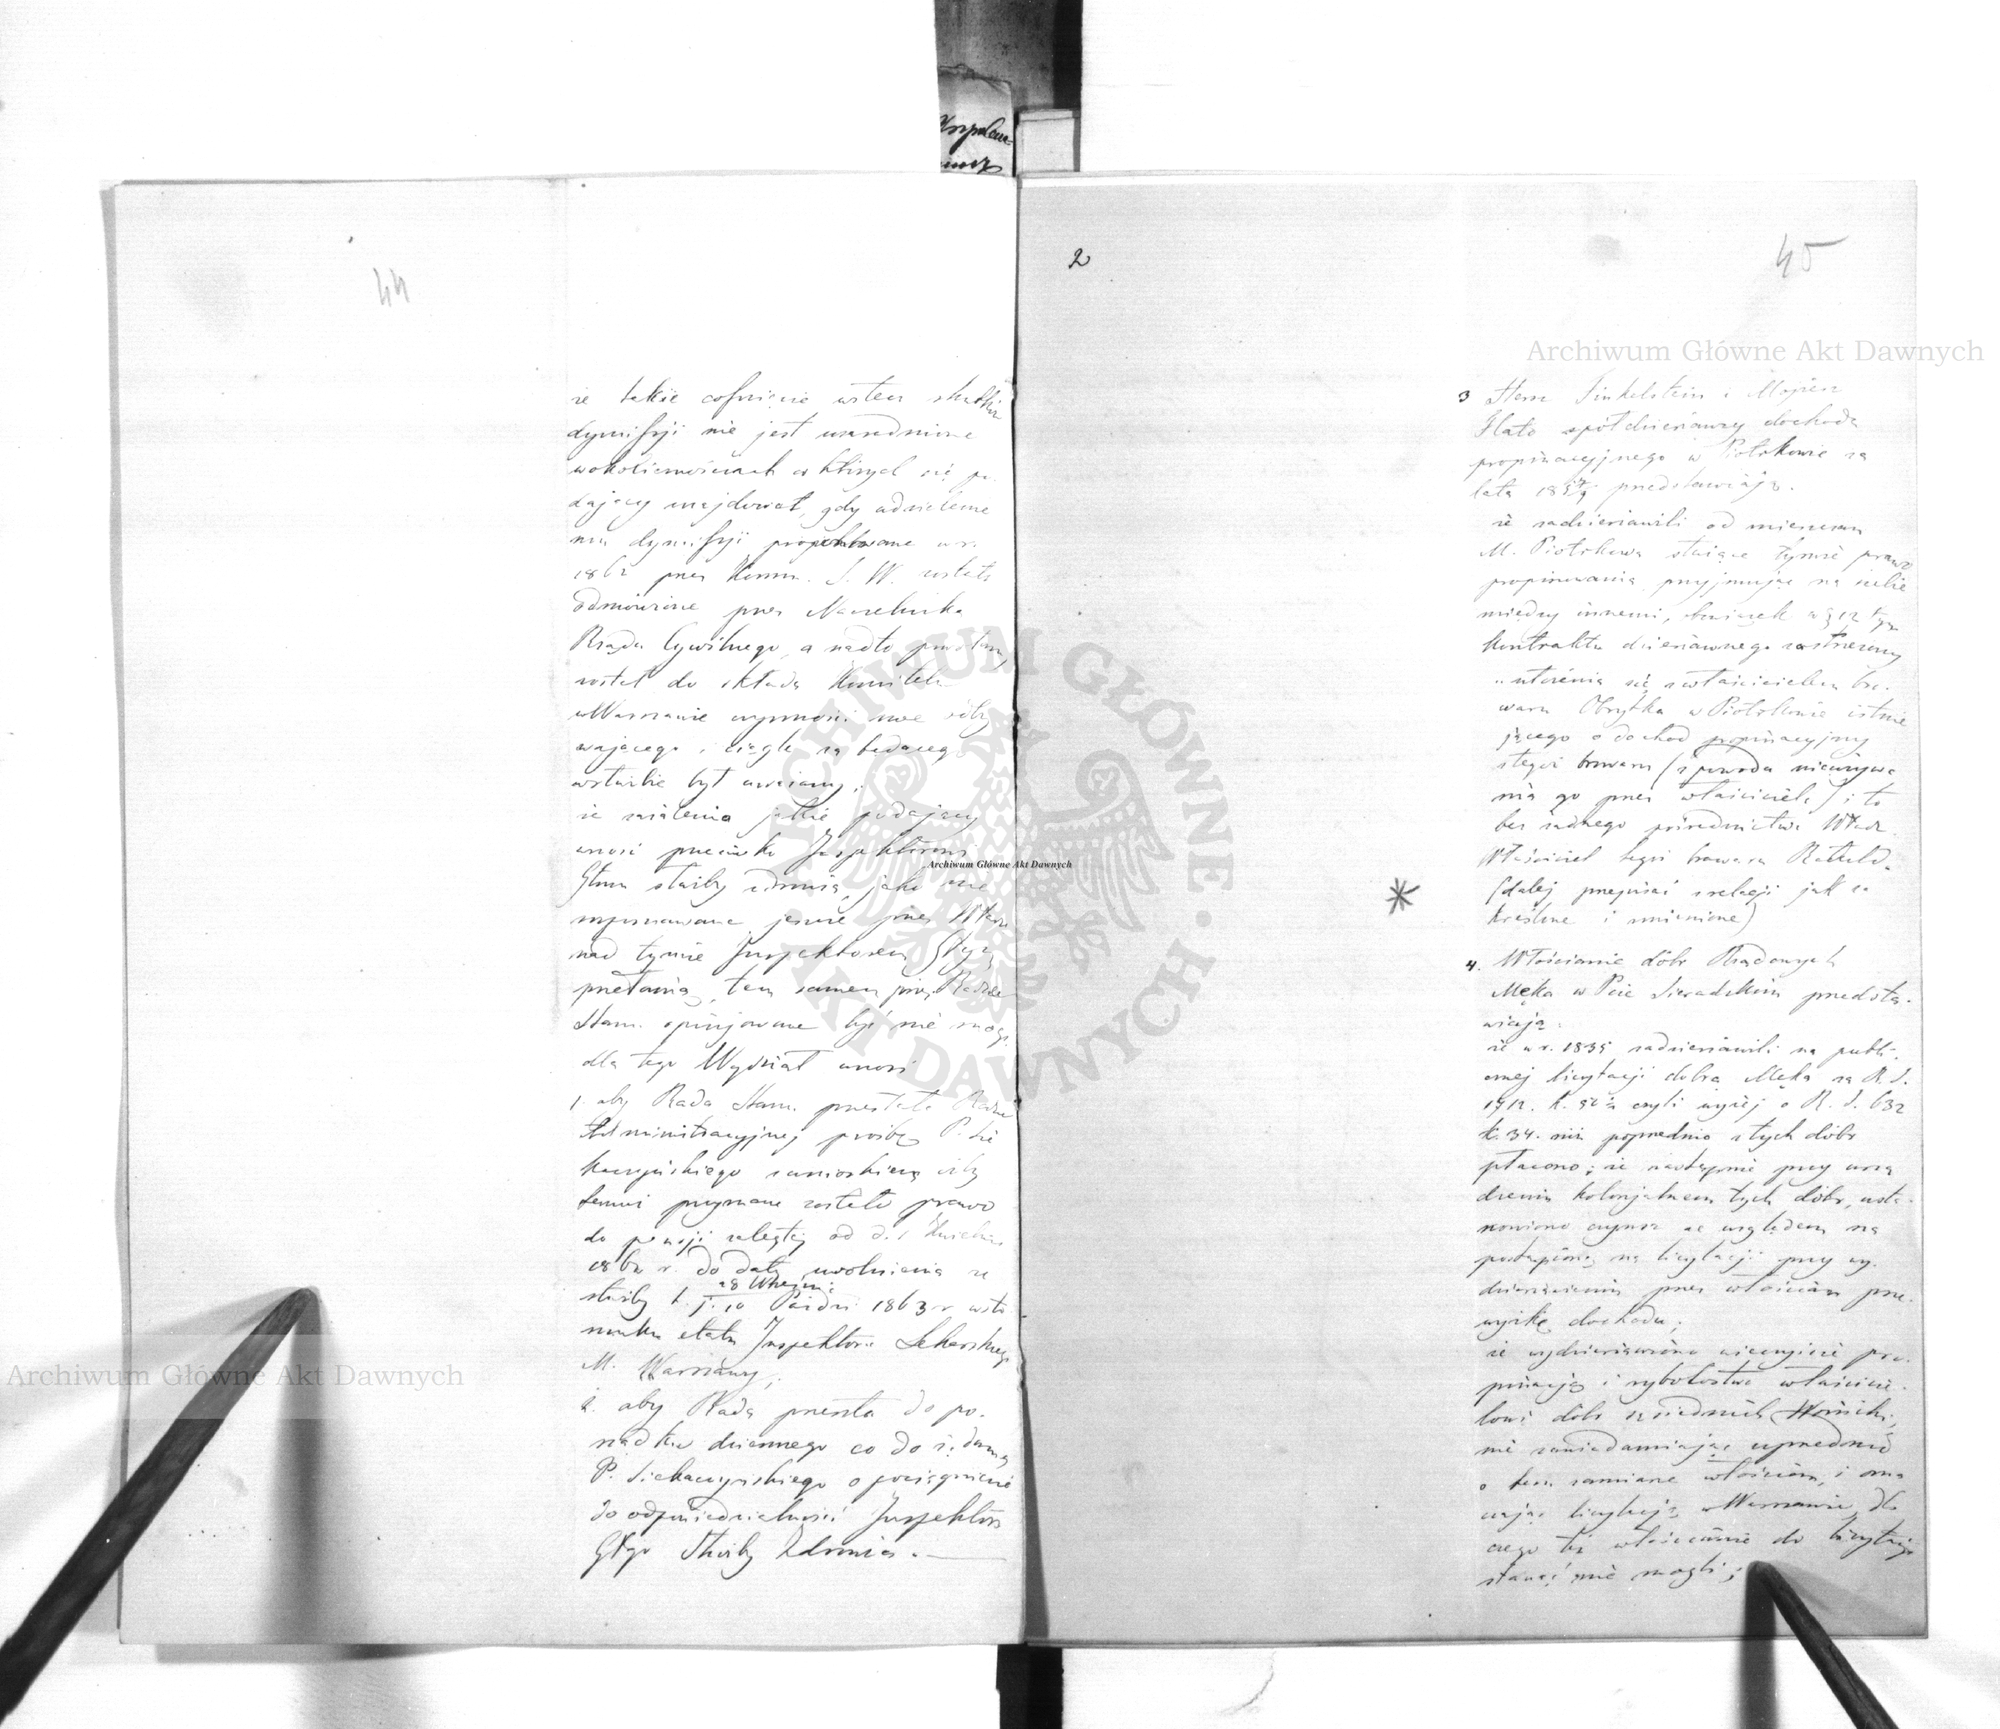 44
że takie cofnięcie wstecz skutków
dymissyi nie jest uzasadnione
w okolicznościach w których się po-
dający znajdował, gdy udzielenie
mu dymissyi projektowane w r.
1862 przez Komm. S. W. zostało
odmówione przez Naczelnika
Rządu Cywilnego, a nadto powołany
został do składu Komitetu
w Warszawie
wającego i ciągle za będącego
w służbie był uważany;
że zażalenia jakie podający
wnosi przeciwko Inspektorowi
Głmu służby zdrowia, jako nie
rozpoznawane jeszcze przez Władzę
nad tymże Inspektorem Głym
przełożoną, tem samem przez Radę
Stanu opiniowane być nie mogą
dla tego Wydział wnosi
1. aby Rada Stanu przesłała Radzie
Administracyjnej prośbę P. Sie
kaczyńskiego z wnioskiem iżby
temuż przyznane zostało prawo
do pensji zaległej od d. 1
1862 r. do daty uwolnienia ze
28 Września
służby t. j. 10 Paźdz. 1863 r. w sto-
sunku etatu Inspektora Lekarskiego
M. Warszawy;
2. aby Rada przeszła do po-
rządku dziennego co do żądania
P. Siekaczyńskiego o pociągnienie
do odpowiedzialności Inspektora
Głgo Służby Zdrowia.
2
45
3 Hersz Finkelstein i Mojżesz
Flato spółdzierżawcy dochodu
propinacyjnego w Piotrkowie za
lata przedstawiają.
że zadzierżawili od
M. Piotrkowa służące tymże prawo
propinowania, przyjmując na siebie
między innemi, obowiązek w § 12 tego
kontraktu dzierżawnego zastrzeżony
"ułożenia się z właścicielem bro-
waru Obrytka w Piotrkowie istnie
jącego o dochód propinacyjny
z tegoż browaru (z powodu nieużywa
nia go przez właściciela) i to
bez żadnego pośrednictwa Władz.
Właściciel tegoż browaru
(dalej przepisać z relacji jak za
kreślone i zmienione)
4. Włościanie dóbr Rządowych
Męka w Pcie Sieradzkim przedsta-
wiają:
że w r. 1835 zadzierżawili na publi-
cznej licytacji dobra Męka za R. S.
1912. k. 50 czyli wyżej o R. S. 632
k. 34. niż poprzednio z tych dóbr
płacono; że następnie przy urzą
dzeniu kolonjalnem tych dóbr, usta-
nowiono czynsz ze względem na
postąpioną na licytacji przy wy-
dzierżawieniu przez włościan prze-
wyżkę dochodu;
że wydzierżawiono wieczyście pro-
pinację i rybołostwo właścicie-
lowi dóbr sąsiednich Woźniki,
nie zawiadamiając uprzednio
o tem zamiarze włościan, i ozna
czając licytację w Warszawie, dla
czego też włościanie do licytacji
stanąć nie mogli;
Archiwum Główne Akt Dawnych
Archiwum Główne Akt Dawnych
Archiwum Główne Akt Dawnych
ARCHIWUM GŁÓWNE
AKT DAWNYCH